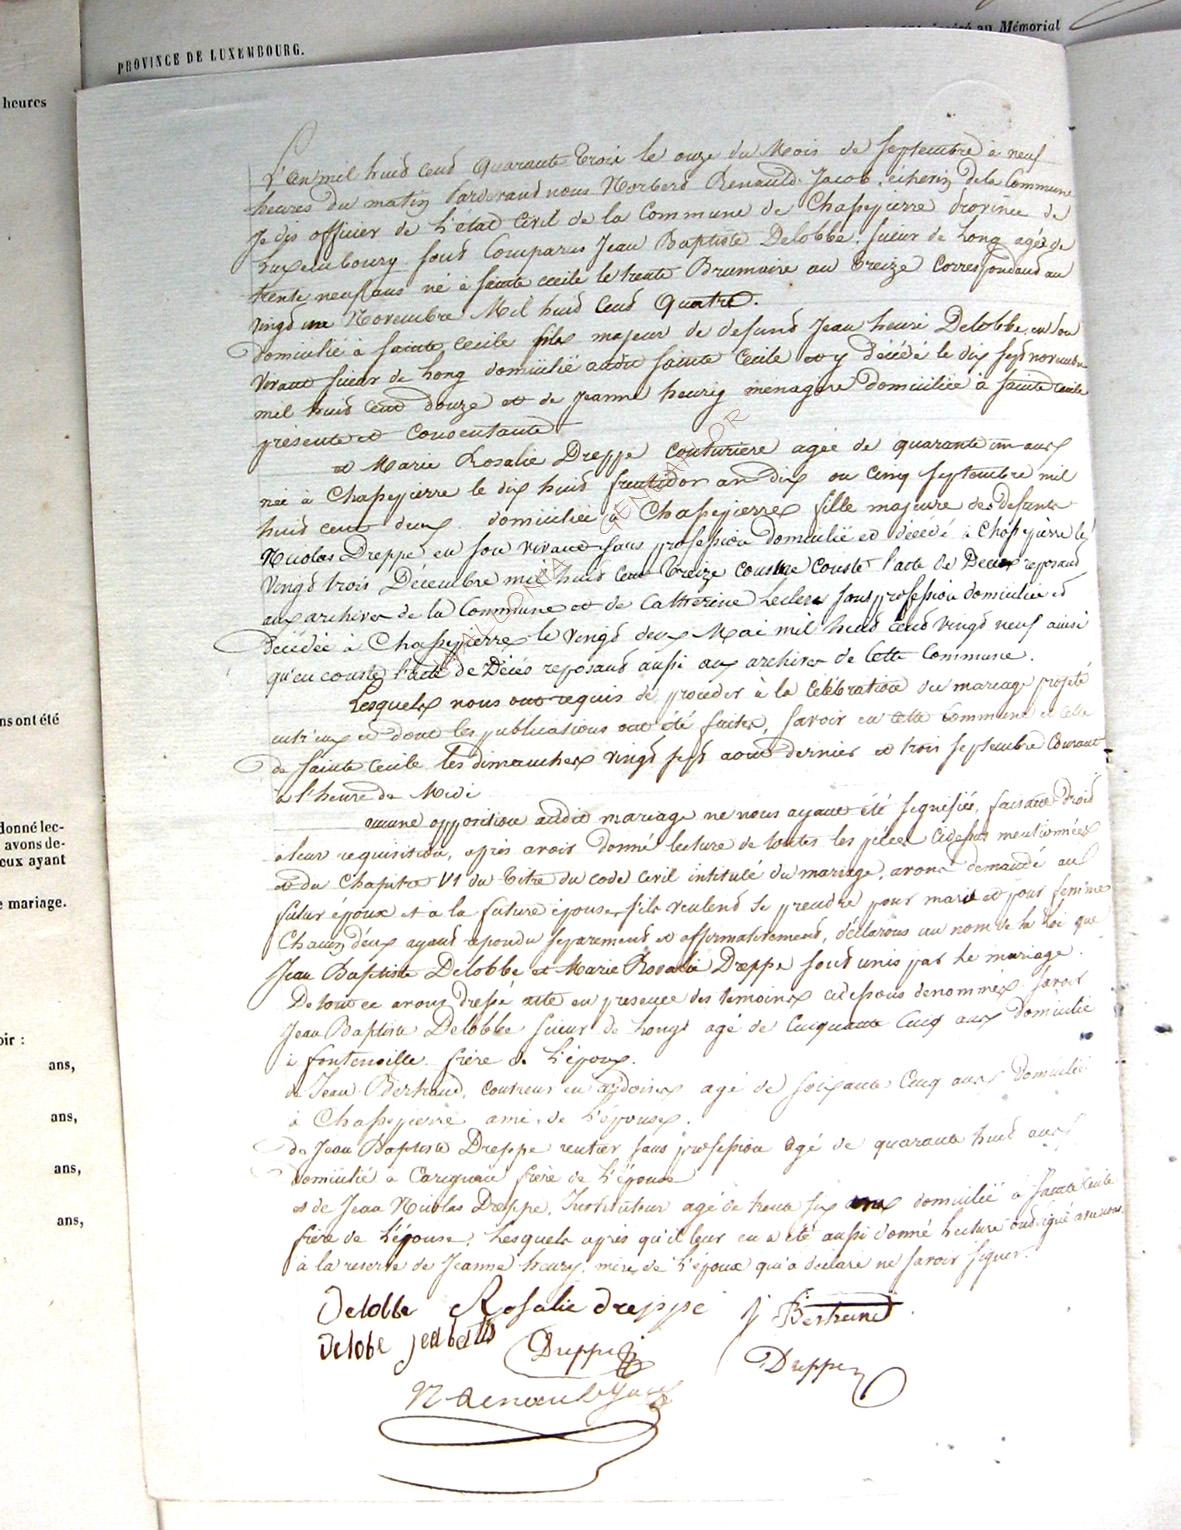 PROVINCE DE LUXEMBOURG.
au Mémorial
heures
L'an mil huit cent quarante trois le onze du Mois de Septembre à neuf
heures du matin Pardevant nous Norbert Renauld Jacob, échevin de la Commune
officier de l'état Civil de la Commune de Chassepierre Province de
Luxembourg sont Comparus Jean Baptiste Delobbe, sieur de long agé de
trente neuf ans né à sainte cecile le trente Brumaire an treize Correspondant au
vingt un Novembre Mil huit Cent Quatre.
domicilié à sainte Cecile fils majeur de defunt Jean henri Delobbe, en son
vivant sieur de long domicilié audit sainte Cecile et y décédé le dix sept novembre
mil huit cent douze et de jeanne henry menagère domiciliée à sainte cecile
présente et consentante
et Marie Rosalie Dreppe couturière agée de quarante un ans
née à Chassepierre le dix huit fructidor an dix ou cinq septembre mil
huit cent deux domiciliée à Chassepierre fille majeure des defunts
Nicolas Dreppe en son vivant sans profession domicilié et décédé à Chassepierre le
vingt trois Décembre mil huit Cent treize comme conste l'acte de Décès reposant
aux archives de la Commune et de Catherine Leclere sans profession domiciliée et
Décédée à Chassepierre le vingt deux Mai mil huit Cent vingt neuf ainsi
qu'en conste l'acte de Décès reposant aussi aux archives de Cette Commune.
Lesquels nous ont requis de proceder à la Célébration du mariage projeté
entr'eux et dont les publications ont été faites, savoir en Cette Commune et Celle
de Sainte Cecile les dimanches vingt sept aout dernier et trois septembre Courant
à l'heure de Midi
aucune opposition audit mariage ne nous ayant été signifiée, faisant Droit
a leur requisition, après avoir donné lecture de toutes les pièces Cidessus mentionnées
et du Chapitre VI du titre du code Civil intitulé du mariage, avons demandé au
futur époux et à la future épouse s'ils veulent se prendre pour mari et pour femme
Chacun d'eux ayant repondu separement et affirmativement, déclarons au nom de la Loi que
Jean Baptiste Delobbe et Marie Rosalie Dreppe sont unis par le mariage.
De tout ce avons dressé acte en presence des témoins cidessous denommés savoir
Jean Baptiste Delobbe sieur de longs agé de Cinquante Cinq ans domicilié
à fontenoille frère de l'époux.
de Jean Bertrand, couvreur en ardoises agé de soixante Cinq ans Domicilié
à Chassepierre ami de l'épouse.
de Jean Baptiste Dreppe rentier sans profession agé de quarante huit ans
domicilié a Carignan frère de l'épouse
et de Jean Nicolas Dreppe, Instituteur agé de trente six ans domicilié à sainte Cecile
frère de l'épouse, Lesquels après qu'il leur en a été aussi donné lecture ont signé avec nous
à la reserve de Jeanne henry, mère de l'époux qui a déclaré ne savoir signer.
Delobbe Rosalie dreppe j Bertrand
Delobe jean batis Dreppe Dreppe
N Renauld Jacob
ns ont été
donné lec-
avons de-
eux ayant
e mariage.
oir :
ans,
ans,
ans,
ans,